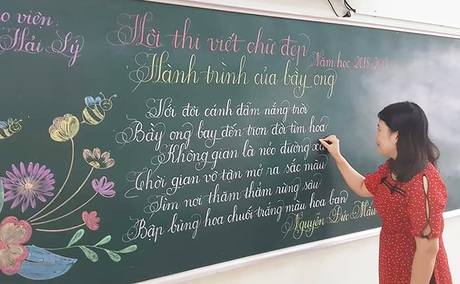 o viên:
Hải Lý
Hội thi viết chữ đẹp
Năm học 2018-201
Hành trình của bầy ong
Với đôi cánh đẫm nắng trời
Bầy ong bay đến trọn đời tìm hoa
Không gian là nẻo đường xa
Thời gian vô tận mở ra sắc màu
Tìm nơi thăm thẳm rừng sâu
Bập bùng hoa chuối trắng màu hoa ban
Nguyễn Đức Mậu